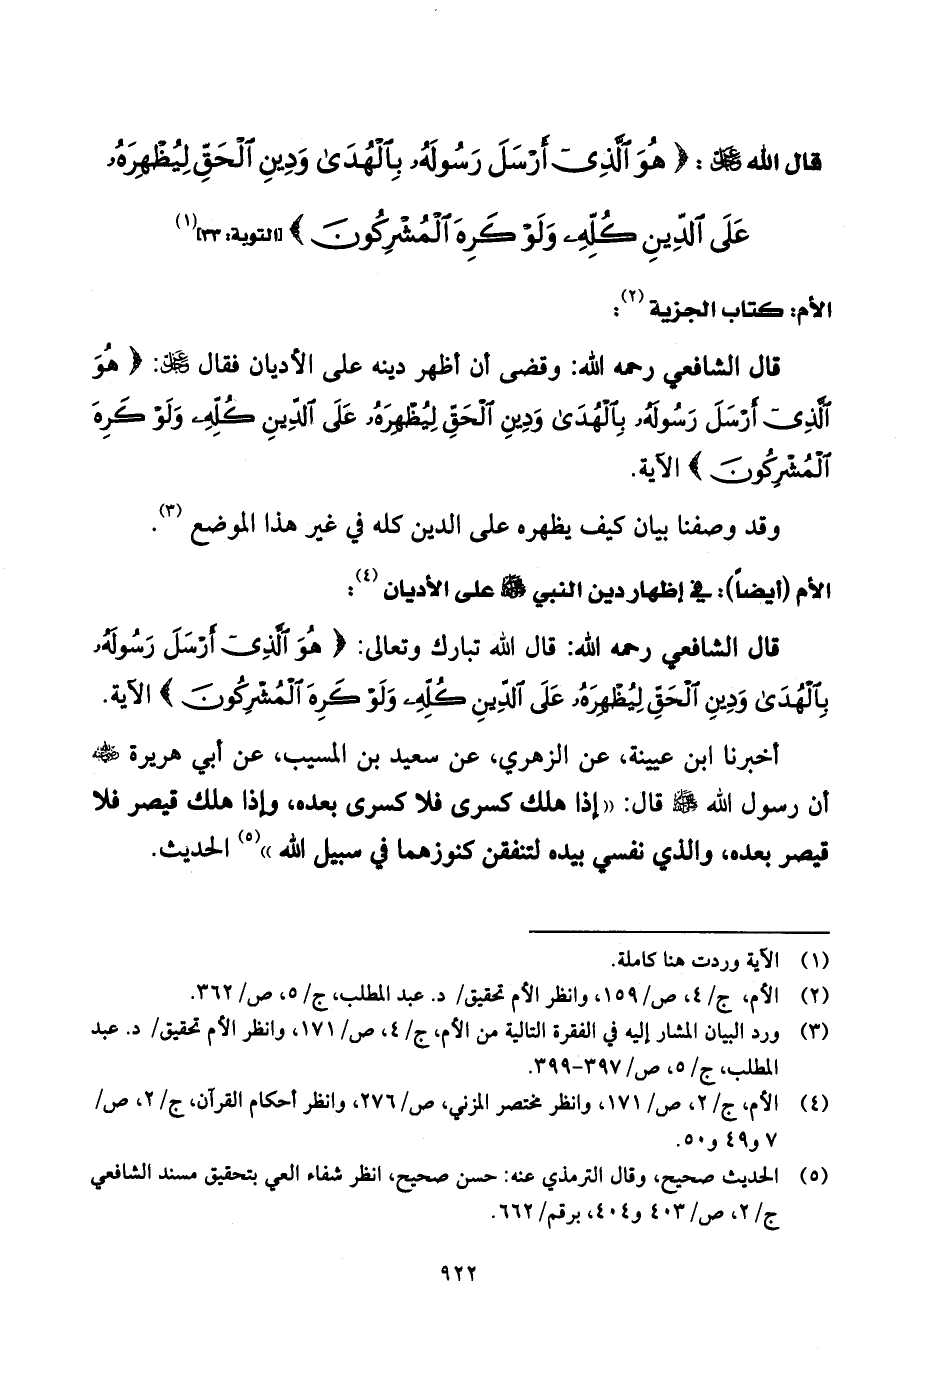 قال الله ﷿ : ﴿ هُوَ ٱلَّذِىٓ أَرْسَلَ رَسُولَهُۥ بِٱلْهُدَىٰ وَدِينِ ٱلْحَقِّ لِيُظْهِرَهُۥ
عَلَى ٱلدِّينِ كُلِّهِۦ وَلَوْ كَرِهَ ٱلْمُشْرِكُونَ ﴾ [التوبة: ٣٣](١)
الأم: كتاب الجزية (٢):
قال الشافعي رحمه الله: وقضى أن أظهر دينه على الأديان فقال ﷿: ﴿ هُوَ
ٱلَّذِىٓ أَرْسَلَ رَسُولَهُۥ بِٱلْهُدَىٰ وَدِينِ ٱلْحَقِّ لِيُظْهِرَهُۥ عَلَى ٱلدِّينِ كُلِّهِۦ وَلَوْ كَرِهَ
ٱلْمُشْرِكُونَ ﴾ الآية.
وقد وصفنا بيان كيف يظهره على الدين كله في غير هذا الموضع (٣).
الأم (أيضاً): في إظهار دين النبي ﷺ على الأديان (٤):
قال الشافعي رحمه الله: قال الله تبارك وتعالى: ﴿ هُوَ ٱلَّذِىٓ أَرْسَلَ رَسُولَهُۥ
بِٱلْهُدَىٰ وَدِينِ ٱلْحَقِّ لِيُظْهِرَهُۥ عَلَى ٱلدِّينِ كُلِّهِۦ وَلَوْ كَرِهَ ٱلْمُشْرِكُونَ ﴾ الآية.
أخبرنا ابن عيينة، عن الزهري، عن سعيد بن المسيب، عن أبي هريرة ﵁
أن رسول الله ﷺ قال: «إذا هلك كسرى فلا كسرى بعده، وإذا هلك قيصر فلا
قيصر بعده، والذي نفسي بيده لتنفقن كنوزهما في سبيل الله »(٥) الحديث.
(١) الآية وردت هنا كاملة.
(٢) الأم، ج/ ٤، ص/ ١٥٩، وانظر الأم تحقيق/ د. عبد المطلب، ج/ ٥، ص/ ٣٦٢.
(٣) ورد البيان المشار إليه في الفقرة التالية من الأم، ج/ ٤، ص/ ١٧١، وانظر الأم تحقيق/ د. عبد
المطلب، ج/ ٥، ص/ ٣٩٧-٣٩٩.
(٤) الأم، ج/ ٢، ص/ ١٧١، وانظر مختصر المزني، ص/ ٢٧٦، وانظر أحكام القرآن، ج/ ٢، ص/
٧ و٤٩ و٥٠.
(٥) الحديث صحيح، وقال الترمذي عنه: حسن صحيح، انظر شفاء العي بتحقيق مسند الشافعي
ج/ ٢، ص/ ٤٠٣ و٤٠٤، برقم/ ٦٦٢.
٩٢٢